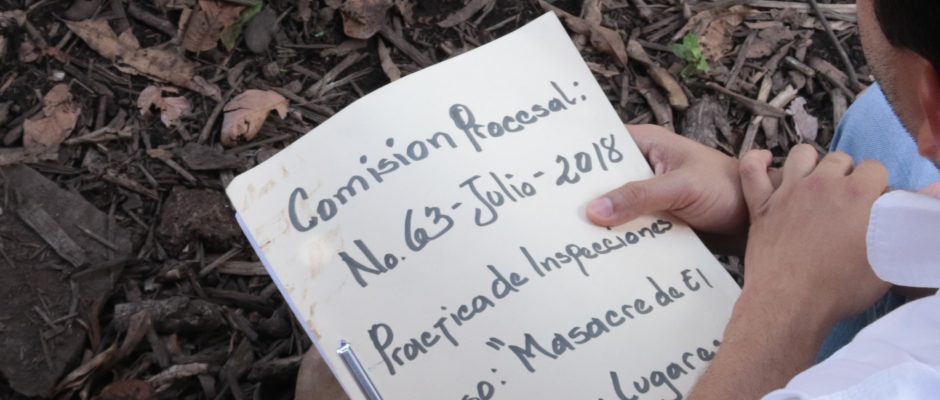 Comision Procesal:
No. 63-Julio-2018
Practica de Inspecciones
so: "Masacre de El
Lugares